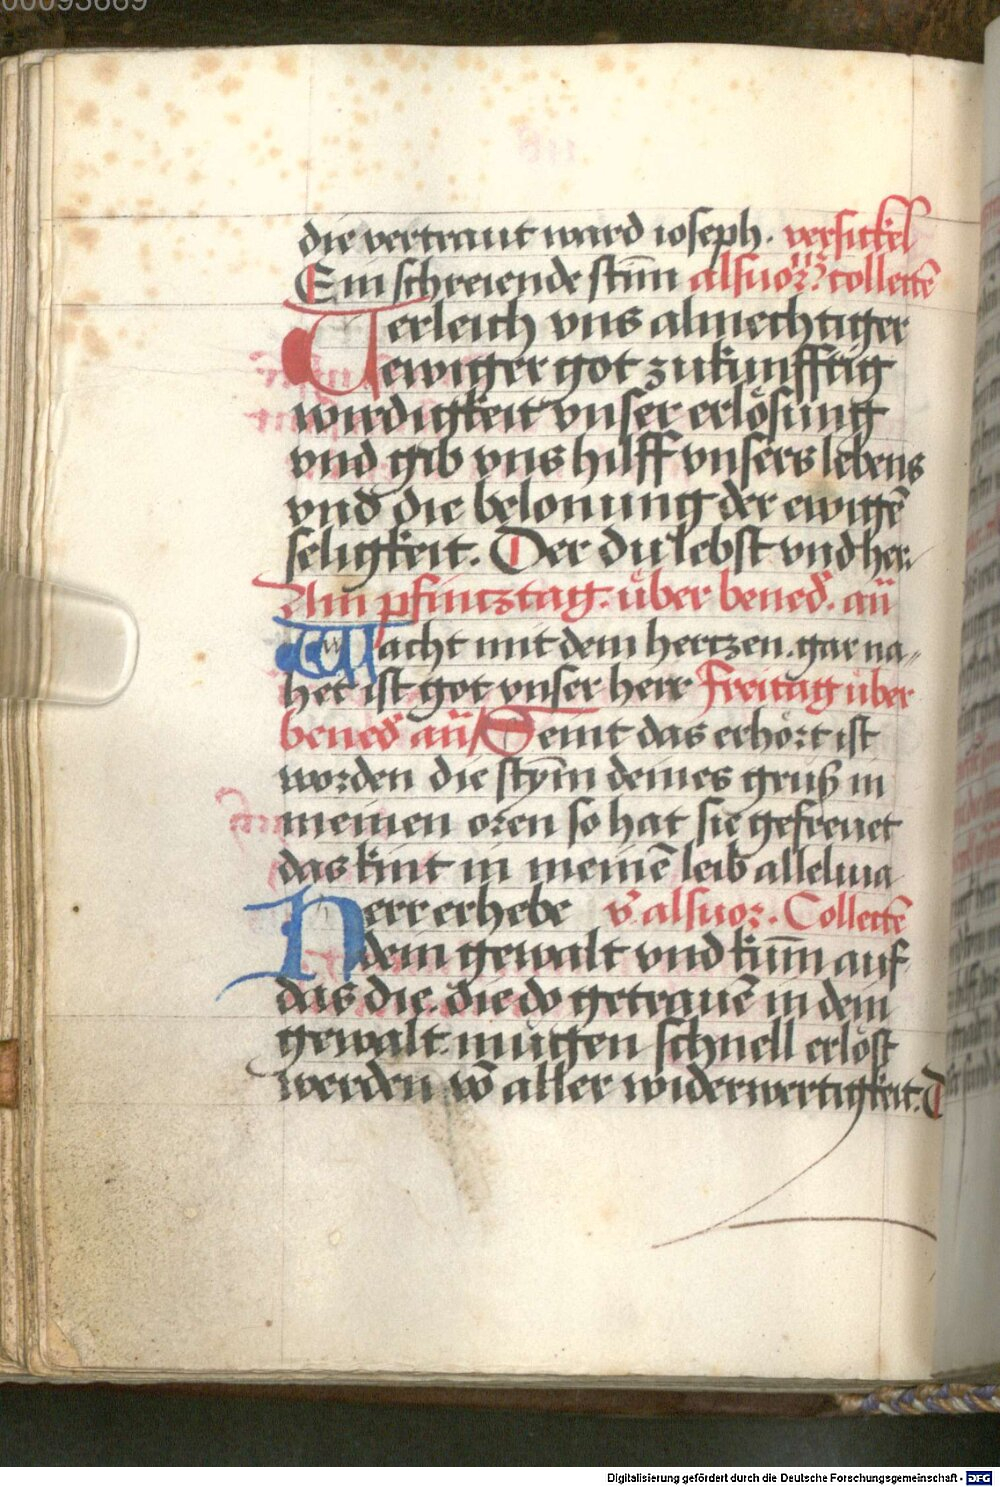 00093669
die vertraut ward ioseph. versickel
Ein schreiende stim̄ als vor ꝛc̄ collectē
Verleich vns almechtiger
ewiger got zukunfftig
wirdigkeit vnser erlösung
vnd gib vns hilff vnsers lebens
vnd die belonung der ewigē
seligkeit. Der du lebst vnd her.
Am pfincztag. über bened̄. an̄
Wacht mit dem hertzen. gar na-
het ist got vnser herr Freitag über
bened̄ an̄ Seint das erhört ist
worden die stym̄ deines gruß in
meinen oren so hat sie gefreuet
das kint in meinē leib alleluia
Herr erhebe v̄ als vor. Collectē
dein gewalt vnd kum̄ auf
das die. die do getrauē in dein
gewalt. mügen schnell erlöst
werden vō aller widerwertigkeit. D
Digitalisierung gefördert durch die Deutsche Forschungsgemeinschaft - DFG